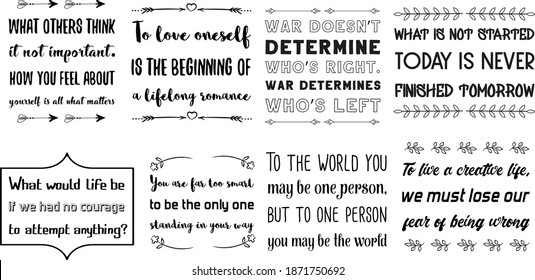 WHAT OTHERS THINK
it not important.
HOW YOU FEEL ABOUT
yourself is all what matters
To love oneself
IS THE BEGINNING OF
a lifelong romance
WAR DOESN'T
DETERMINE
WHO'S RIGHT.
WAR DETERMINES
WHO'S LEFT
WHAT IS NOT STARTED
TODAY IS NEVER
FINISHED TOMORROW
What would life be
if we had no courage
to attempt anything?
You are far too smart
to be the only one
standing in your way
TO THE WORLD YOU
may be one person,
BUT TO ONE PERSON
you may be the world
To live a creative life,
we must lose our
fear of being wrong
shutterstock.com · 1871750692